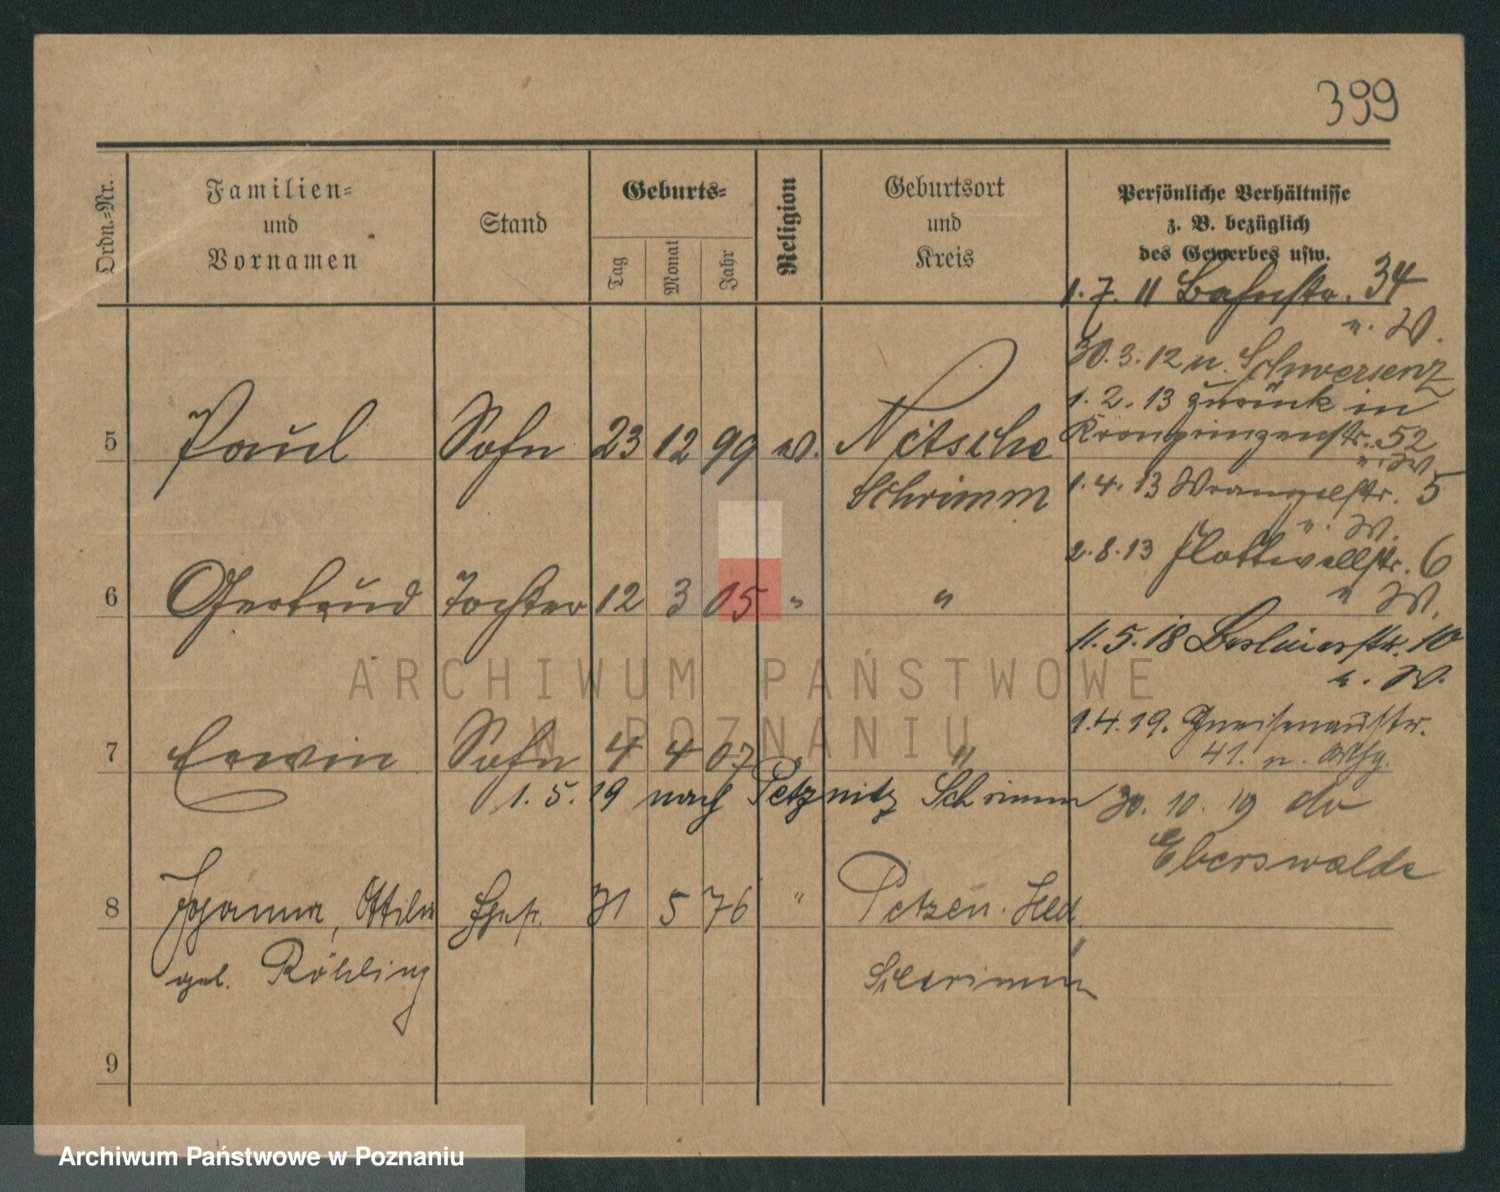 399
Ordn.-Nr.
Familien-
und
Vornamen
Stand
Geburts-
Tag
Monat
Jahr
Religion
Geburtsort
und
Kreis
Persönliche Verhältnisse
z. B. bezüglich
des Gewerbes usw.
1. 7. 11 Bahnstr. 34
n. W.
30. 3. 12 n. Schwersenz
1. 2. 13 zurück in
Kronprinzenstr. 52
n. W.
5 Paul Sohn 23 12 99 ev. Nitsche
Schrimm
1. 4. 13 Wrangelstr. 5
n. W.
2. 8. 13 Flottwellstr. 6
n W.
6 Gertrud Tochter 12 3 05 " "
11. 5. 18 Berlinerstr. 10
n. W.
1. 4. 19. Gneisenaustr.
41. n.
7 Erwin Sohn 4 4 07 "
1. 5. 19 nach Petznitz Schrimm
30. 10. 19
Eberswalde
8 Johanna, Ottilie Ehefr. 31 5 76 " Petzen Hld.
geb. Röhling Schrimm
9
ARCHIWUM PAŃSTWOWE
W POZNANIU
Archiwum Państwowe w Poznaniu